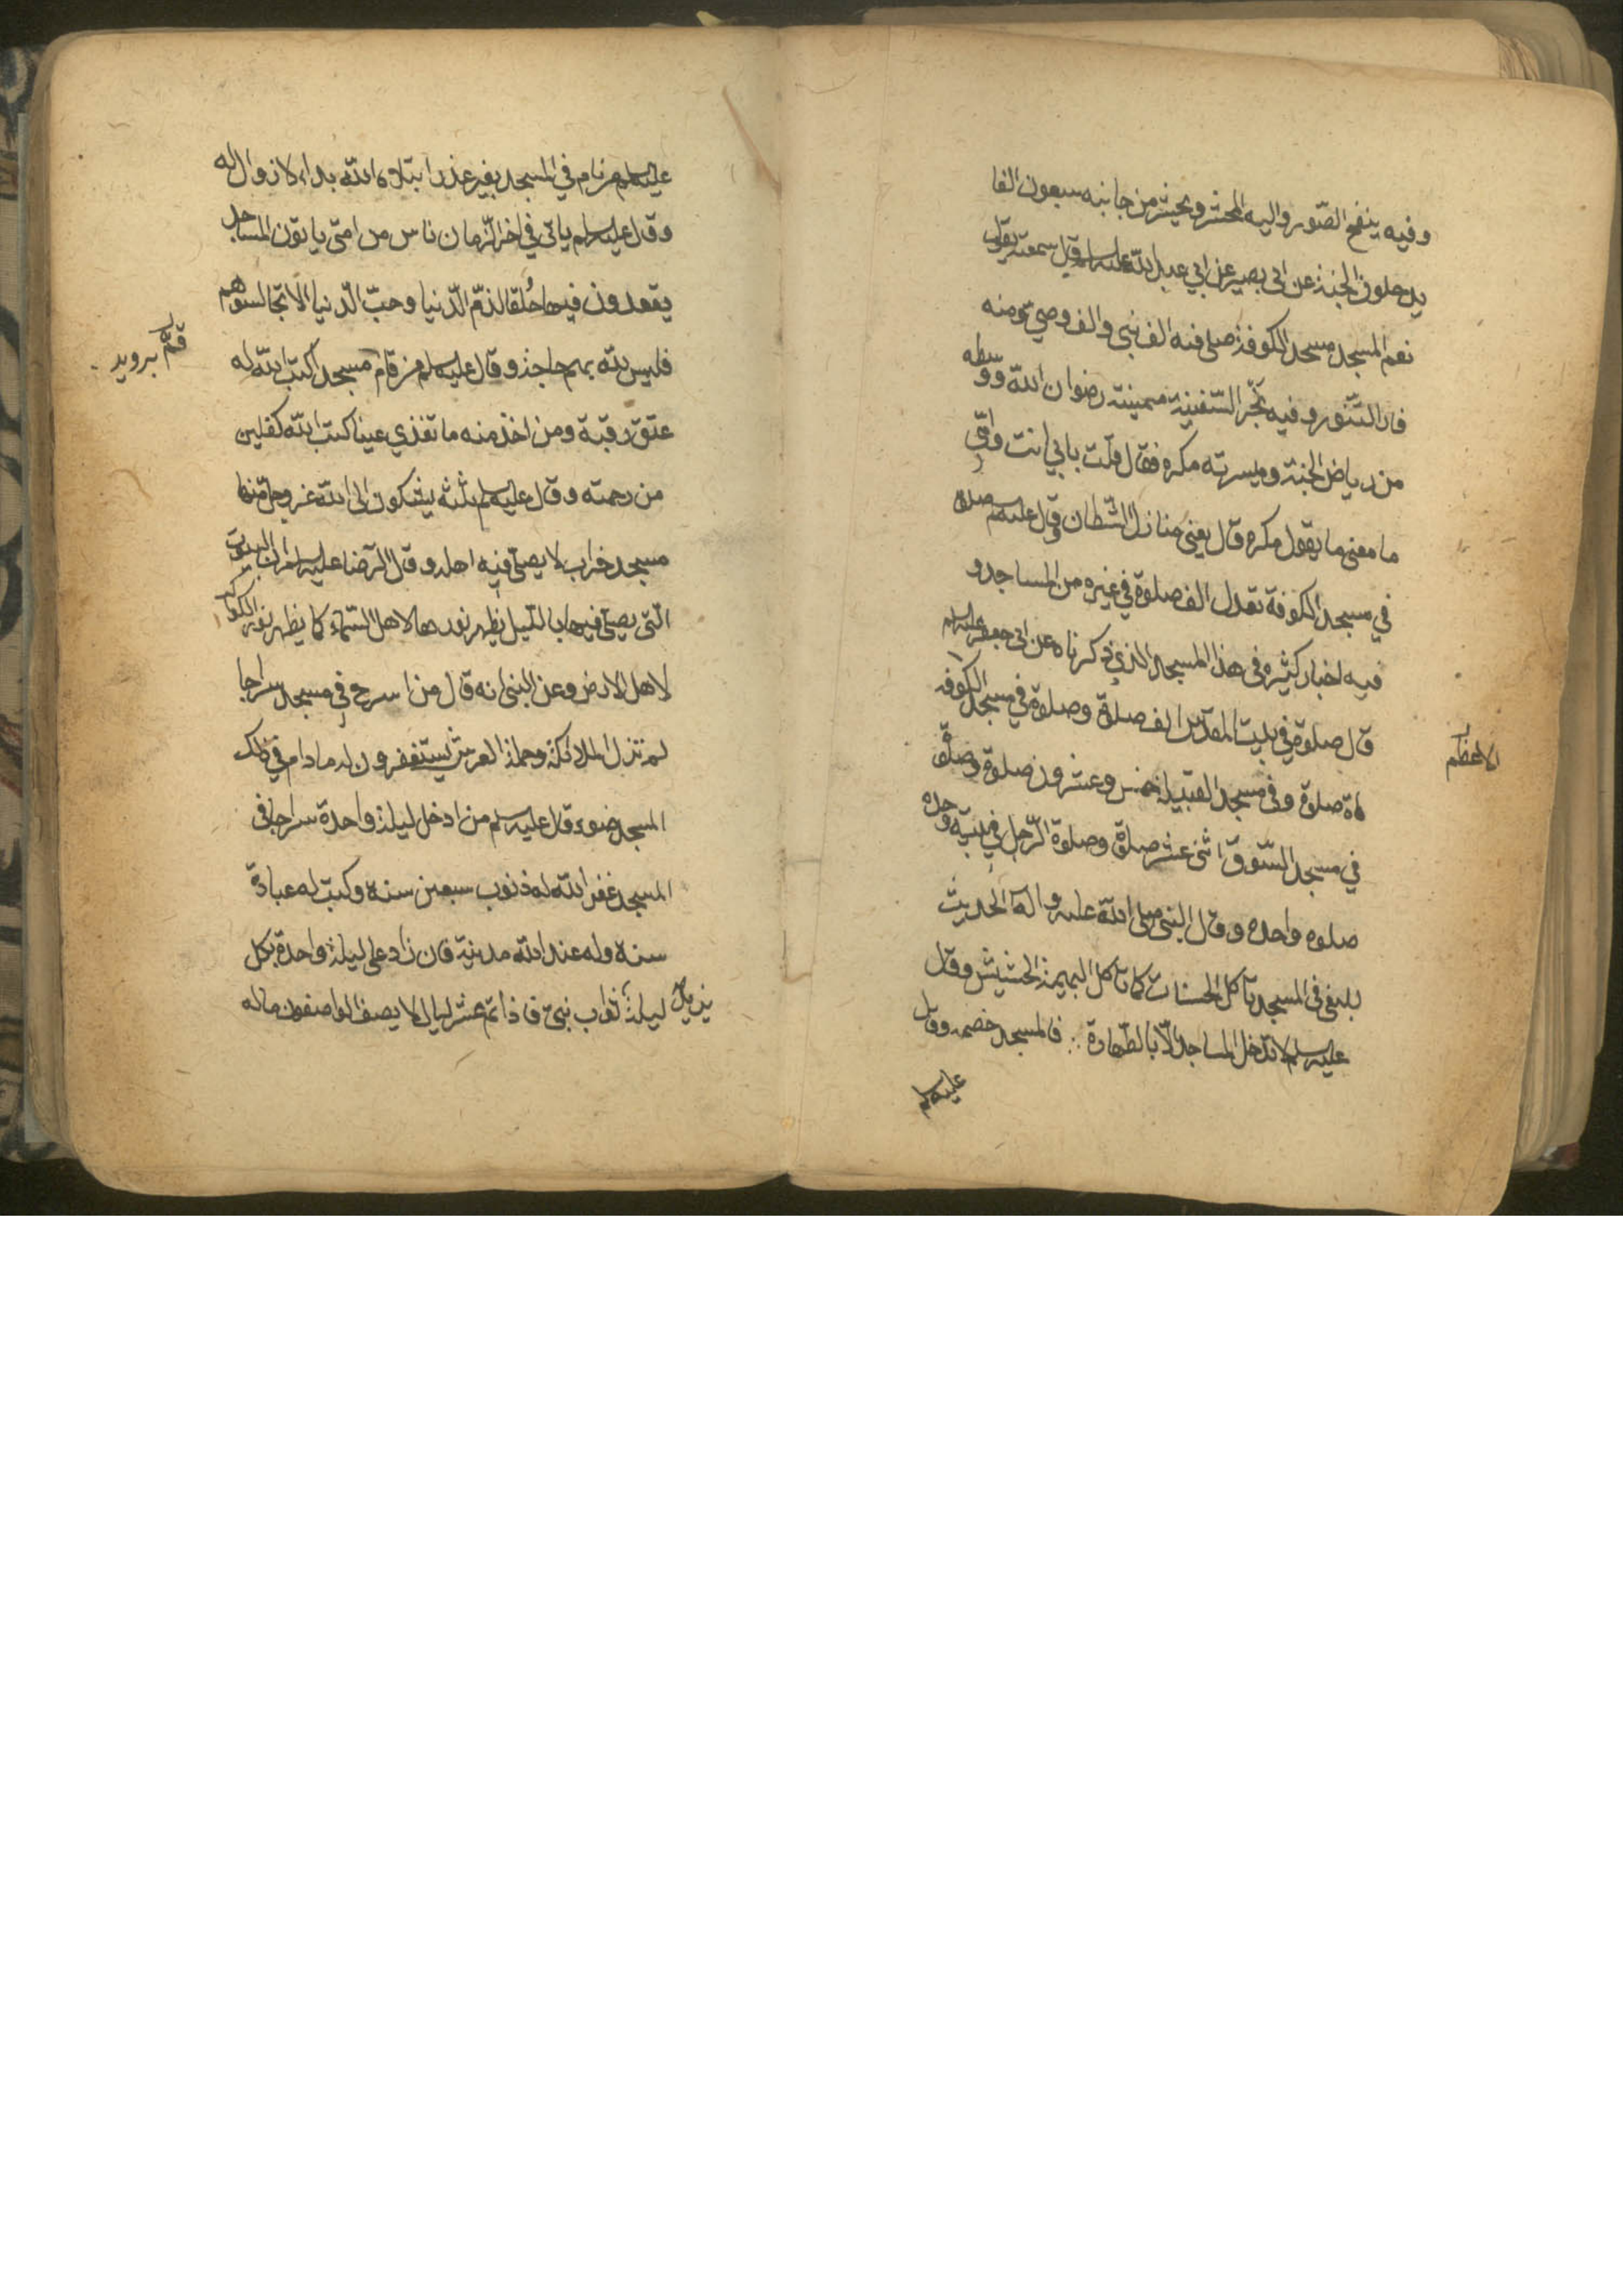 وفيه ينفخ الصّور واليه المحشر ويحشر من جانبه سبعون الفا
يدخلون الجنة عن ابى بصير عن ابي عبد الله عليه السلم قال سمعته يقول
نعم المسجد مسجد الكوفة صلى فيه الف نبي والف وصي ومنه
فار التنّور وفيه نجر السّفينة ميمينته رضوان الله ووسطه
من رياض الجنة وميسرته مكره فقال قلت بابي انت وامّي
ما معنى ما يقول مكره قال يعني منازل الشطان وقال عليه السلم صلوة
في مسجد الكوفة تعدل الف صلوة في غيره من المساجد و
فيه اخبار كثيره في هذا المسجد الذي ذكرناه عن ابى جعفر عليه السلم
قال صلوة في بيت المقدّس الف صلوة وصلوة في مسجد الكوفه
الاعظم
مأة صلوة وفى مسجد القبيلة خمس وعشرون صلوة وصلوة
في مسجد السّوق اثنى عشر صلوة وصلوة الرّجل في بيته وحده
صلوه واحده وقال النبى صلى الله عليه واله الحديث
للبغى فى المسجد يأكل الحسنات كما تاكل البهيمة الحشيش وقال
عليه السلم لا تدخل المساجد الّا بالطّهارة فالمسجد خصمه وقال
عليه السلم
عليه السلم من نام في المسجد بغير عذر ابتلاه الله بداء لا زوال له
وقال عليه السلم ياتى في اخر الزّمان ناس من امتى ياتون المساجد
يقعدون فيها حُلقا لذمّ الدّنيا وحبّ الدّنيا الا تجالسوهم
فليس لله بهم حاجة وقال عليه السلم من قام مسجد اكتب الله له
قمّ بروبيد
عتق رقبة ومن اخذ منه ما تقذي عينا كتب الله كفلين
من رحمته وقال عليه السلم ثلثه يشكون الى الله عز وجل منها
مسجد خراب لا يصلّى فيه اهله وقال الرّضا عليه السلم ان البيوت
الّتى يصلّى فيها بالليل يظهر نورها لاهل السّماء كما يظهر نور الكواكب
لاهل الارض وعن النبى انه قال من اسرح في مسجد سراجا
لم تزل الملائكة وحملة العرش يستغفرون له ما دام في ذلك
المسجد ضوء وقال عليه السلم من ادخل ليلة واحدة سراجا فى
المسجد غفر الله له ذنوب سبعين سنه وكتب له عبادة
سنه وله عند الله مدينة فان زاد على ليلة واحدة بكل
يزيد ليلة ثواب نبىّ فاذا تم عشر ليال لا يصف الواصفون ماله